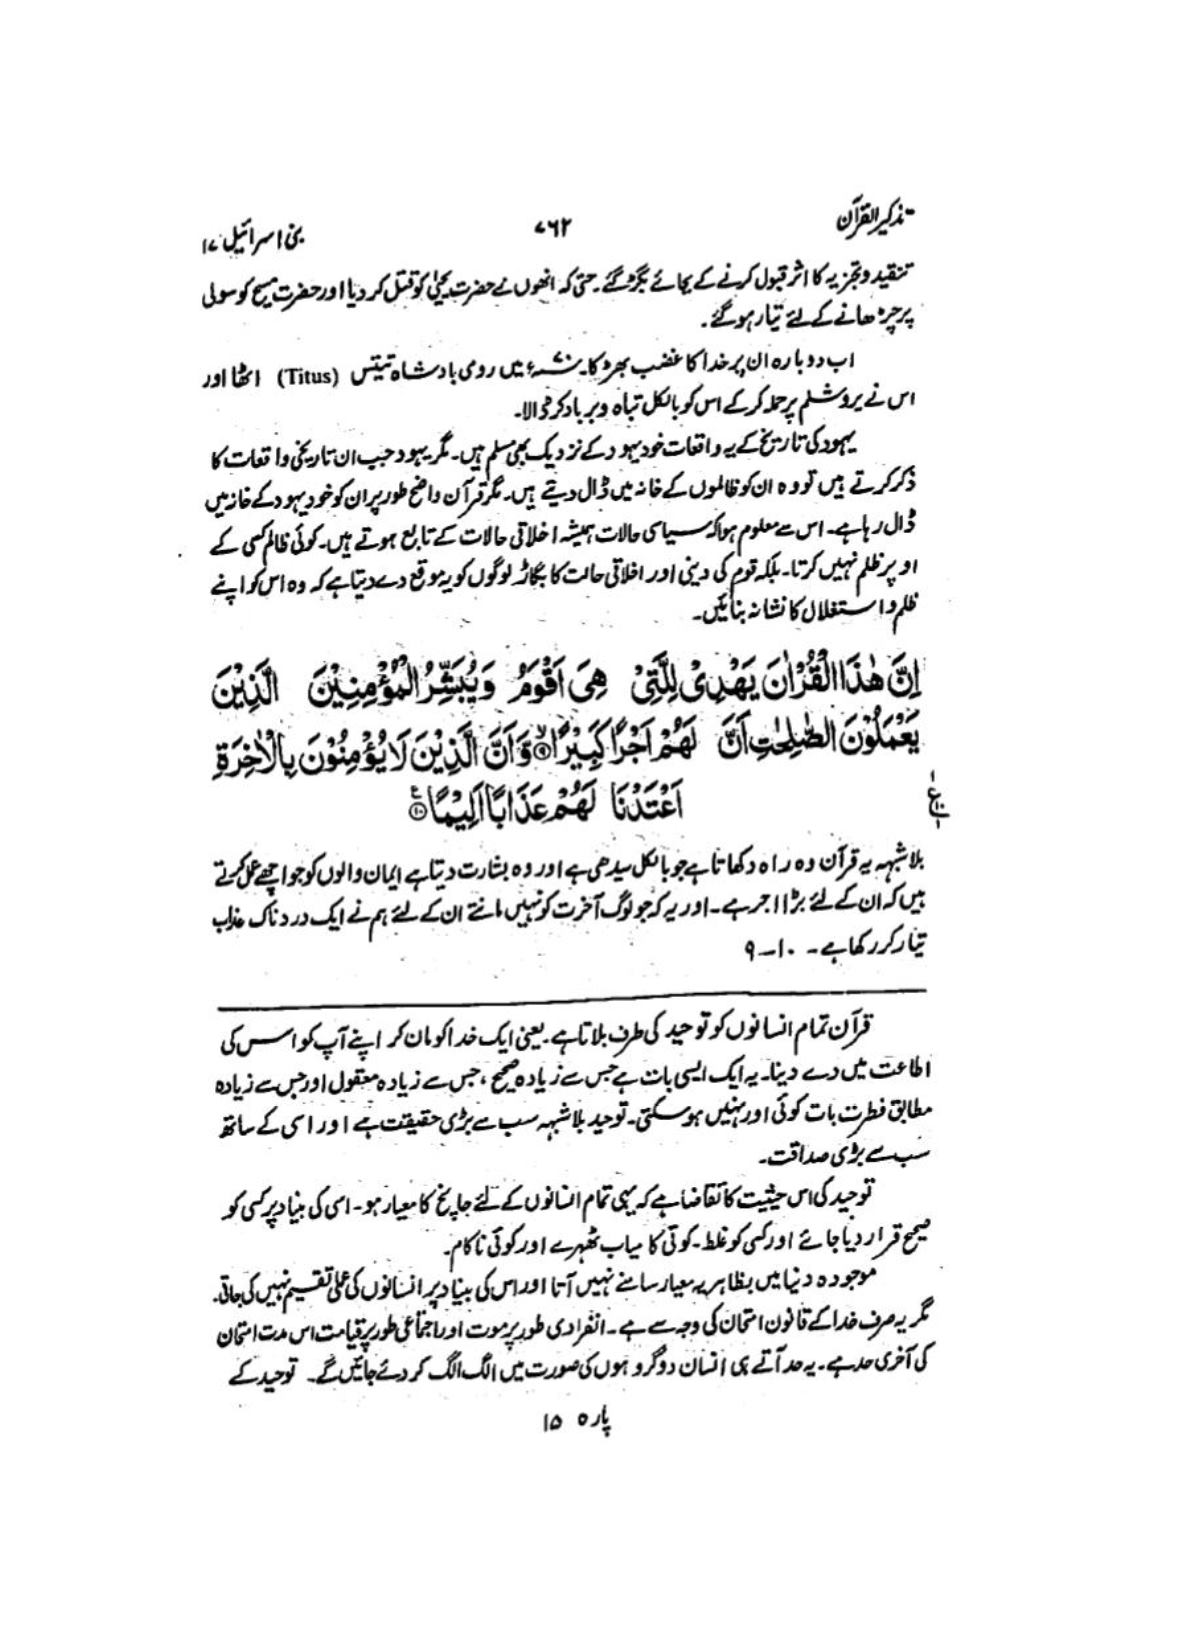 تذکیر القرآن ۷۶۲ بنی اسرائیل ۱۷
تنقید و تجزیہ کا اثر قبول کرنے کے بجائے بگڑ گئے۔ حتی کہ انھوں نے حضرت یحییٰ کو قتل کر دیا اور حضرت مسیح کو سولی
پر چڑھانے کے لئے تیار ہو گئے۔
اب دوبارہ ان پر خدا کا غضب بھڑکا۔ ۷۰ء میں رومی بادشاہ تیتس (Titus) اٹھا اور
اس نے یروشلم پر حملہ کر کے اس کو بالکل تباہ و برباد کر ڈالا۔
یہود کی تاریخ کے یہ واقعات خود یہود کے نزدیک بھی مسلم ہیں۔ مگر یہود جب ان تاریخی واقعات کا
ذکر کرتے ہیں تو وہ ان کو ظالموں کے خانہ میں ڈال دیتے ہیں۔ مگر قرآن واضح طور پر ان کو خود یہود کے خانہ میں
ڈال رہا ہے۔ اس سے معلوم ہوا کہ سیاسی حالات ہمیشہ اخلاقی حالات کے تابع ہوتے ہیں۔ کوئی ظالم کسی کے
اوپر ظلم نہیں کرتا۔ بلکہ قوم کی دینی اور اخلاقی حالت کا بگاڑ لوگوں کو یہ موقع دے دیتا ہے کہ وہ اس کو اپنے
ظلم و استغلال کا نشانہ بنائیں۔
اِنَّ هٰذَا الْقُرْاٰنَ يَهْدِىْ لِلَّتِىْ هِىَ اَقْوَمُ وَيُبَشِّرُ الْمُؤْمِنِيْنَ الَّذِيْنَ
يَعْمَلُوْنَ الصّٰلِحٰتِ اَنَّ لَهُمْ اَجْرًا كَبِيْرًا ۝۹ وَّاَنَّ الَّذِيْنَ لَا يُؤْمِنُوْنَ بِالْاٰخِرَةِ
اَعْتَدْنَا لَهُمْ عَذَابًا اَلِيْمًا ۝۱۰
بلا شبہہ یہ قرآن وہ راہ دکھاتا ہے جو بالکل سیدھی ہے اور وہ بشارت دیتا ہے ایمان والوں کو جو اچھے عمل کرتے
ہیں کہ ان کے لئے بڑا اجر ہے۔ اور یہ کہ جو لوگ آخرت کو نہیں مانتے ان کے لئے ہم نے ایک دردناک عذاب
تیار کر رکھا ہے۔ ۱۰-۹
قرآن تمام انسانوں کو توحید کی طرف بلاتا ہے۔ یعنی ایک خدا کو مان کر اپنے آپ کو اس کی
اطاعت میں دے دینا۔ یہ ایک ایسی بات ہے جس سے زیادہ صحیح، جس سے زیادہ معقول اور جس سے زیادہ
مطابق فطرت بات کوئی اور نہیں ہو سکتی۔ توحید بلا شبہہ سب سے بڑی حقیقت ہے اور اسی کے ساتھ
سب سے بڑی صداقت۔
توحید کی اس حیثیت کا تقاضا ہے کہ یہی تمام انسانوں کے لئے جانچ کا معیار ہو۔ اسی کی بنیاد پر کسی کو
صحیح قرار دیا جائے اور کسی کو غلط۔ کوئی کامیاب ٹھہرے اور کوئی ناکام۔
موجودہ دنیا میں بظاہر یہ معیار سامنے نہیں آتا اور اس کی بنیاد پر انسانوں کی عملی تقسیم نہیں کی جاتی۔
مگر یہ صرف خدا کے قانون امتحان کی وجہ سے ہے۔ انفرادی طور پر موت اور اجتماعی طور پر قیامت اس مدت امتحان
کی آخری حد ہے۔ یہ حد آتے ہی انسان دو گروہوں کی صورت میں الگ الگ کر دئے جائیں گے۔ توحید کے
پارہ ۱۵